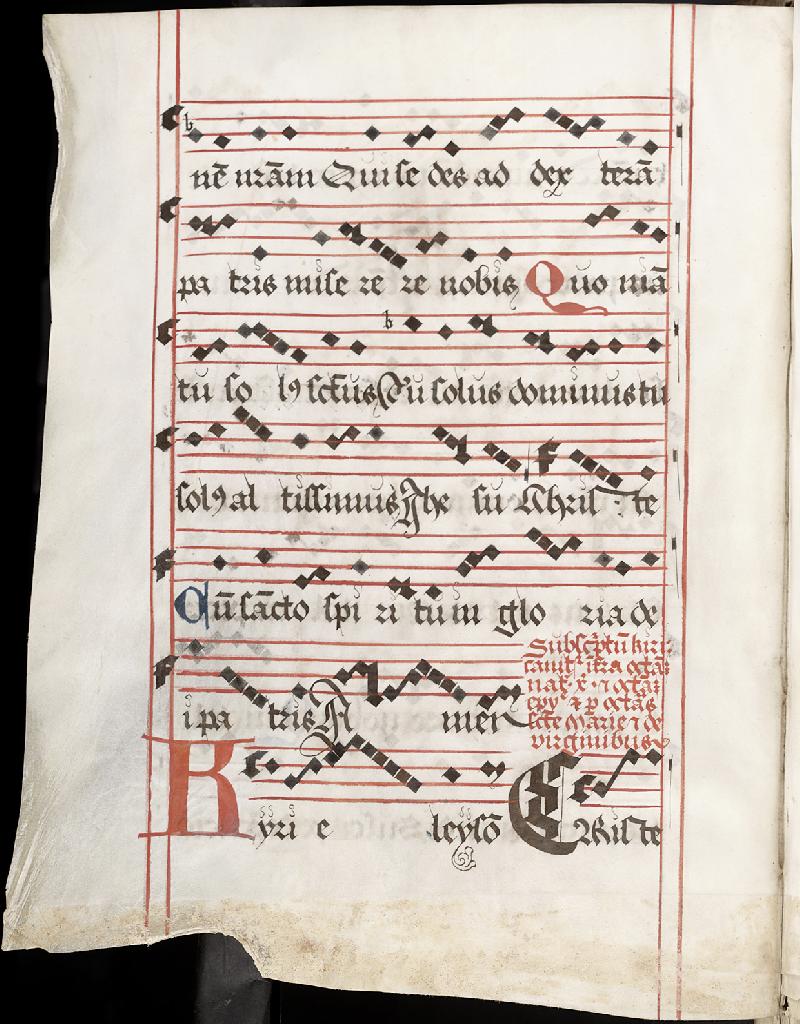 nē nr̄am Qui se des ad dex terā
pa tris mise re re nobis Quo niā
tu so lꝰ sctūs Tu solus dominus tu
solꝰ al tissimus Jhe su Christe
Cū sācto spi ri tum glo ria de
i pa tris A men
Subscptū kiri
nat
scte Marie ⁊ de
virginibus
Kyri e leysō Christe